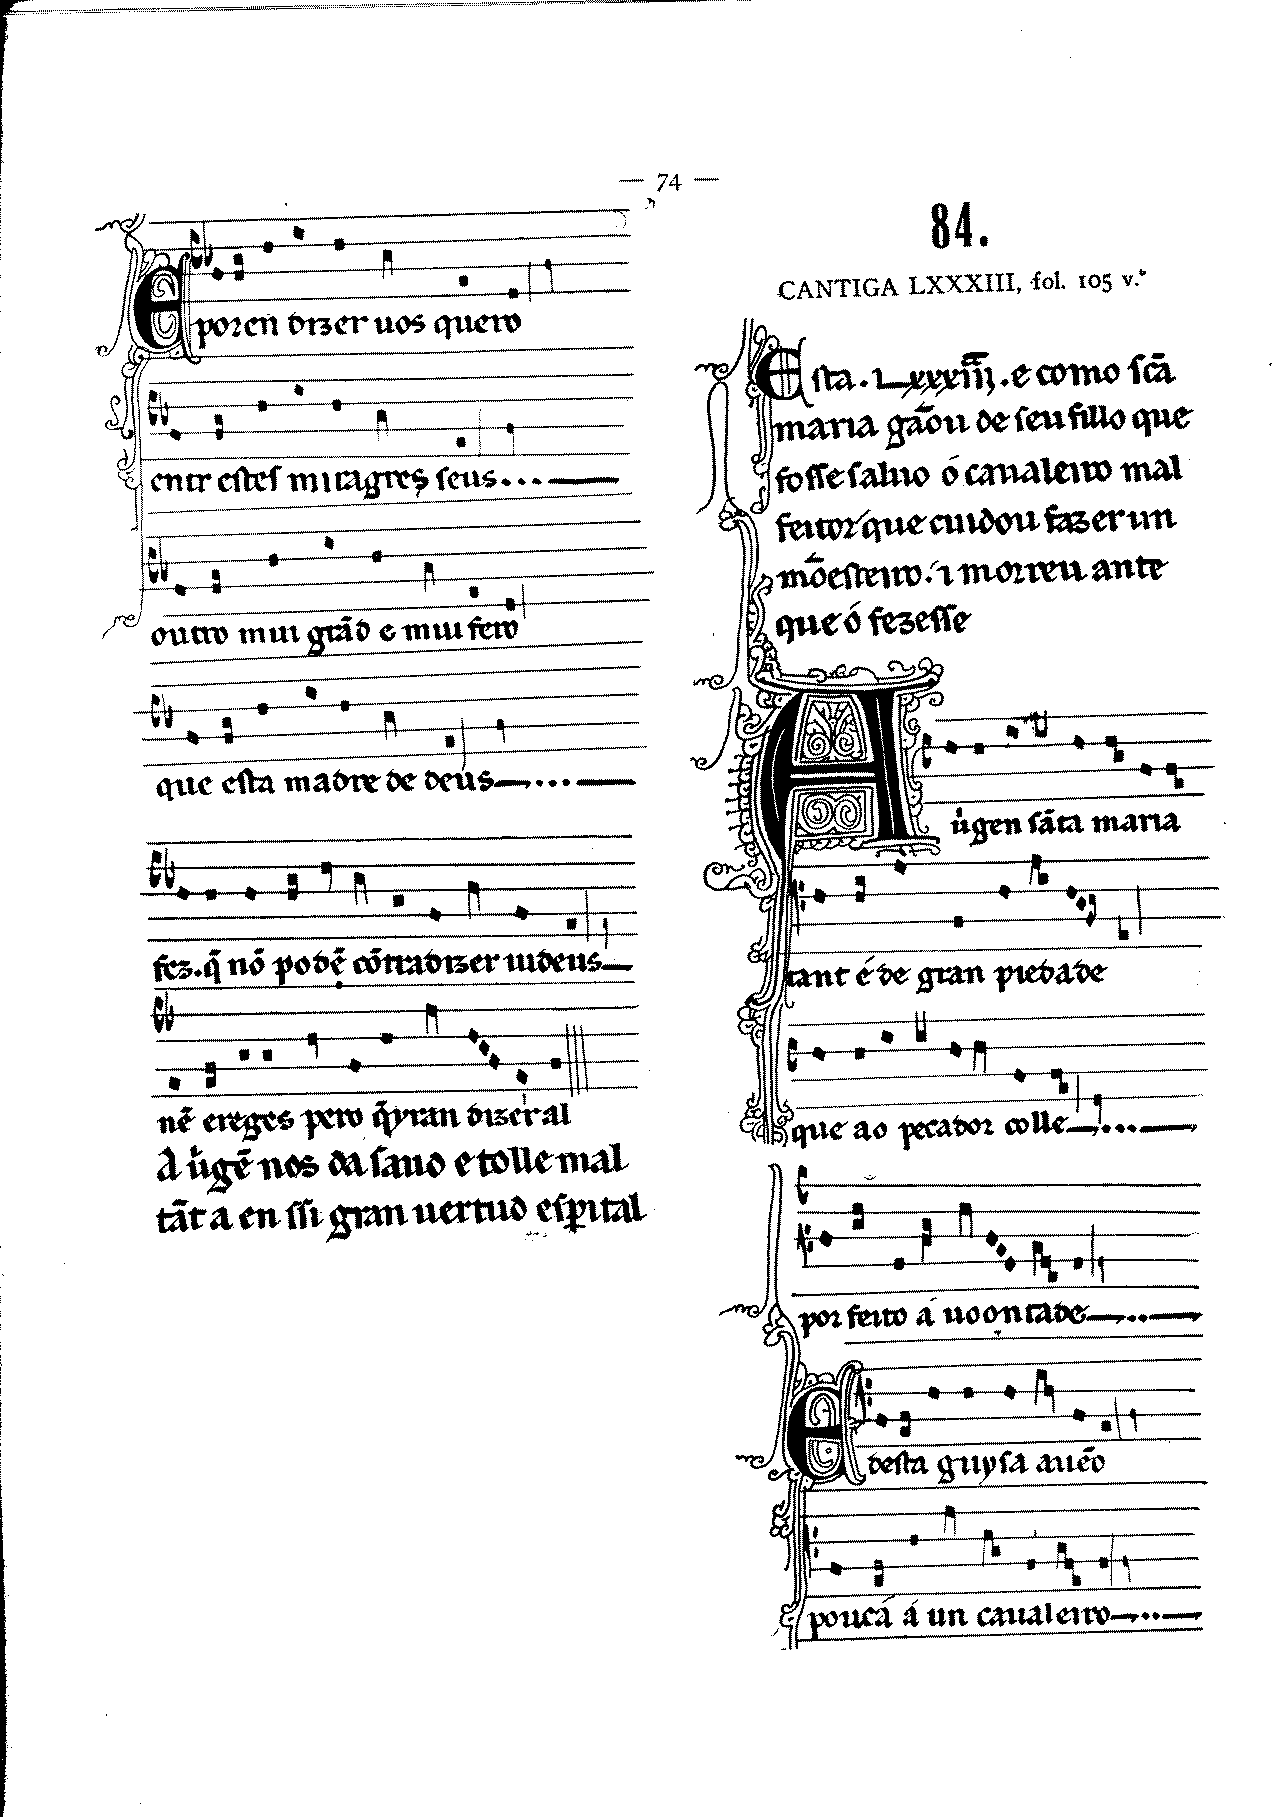 — 74 —
E poren dizer uos quero
entr estes miragres seus
outro mui grãd e mui fero
que esta madre de deus
fez. q̃ nõ podẽ cõtradizer iudeus
nẽ ereges pero q̃yran dizer al
A uirgẽ nos da saud e tolle mal
tãt a en ssi gran uertud espital
84.
CANTIGA LXXXIII, fol. 105 v.º
Esta. LXXXIIII. e como scã
maria gãou de seu fillo que
fosse saluo ó caualeiro mal
feitor que cuidou fazer un
mõesteiro. ⁊ morreu ante
que ó fezesse
A uirgen sãta maria
tant é de gran piedade
que ao pecador colle
por feito á uoontade
E desta guysa auẽo
poucá á un caualeiro